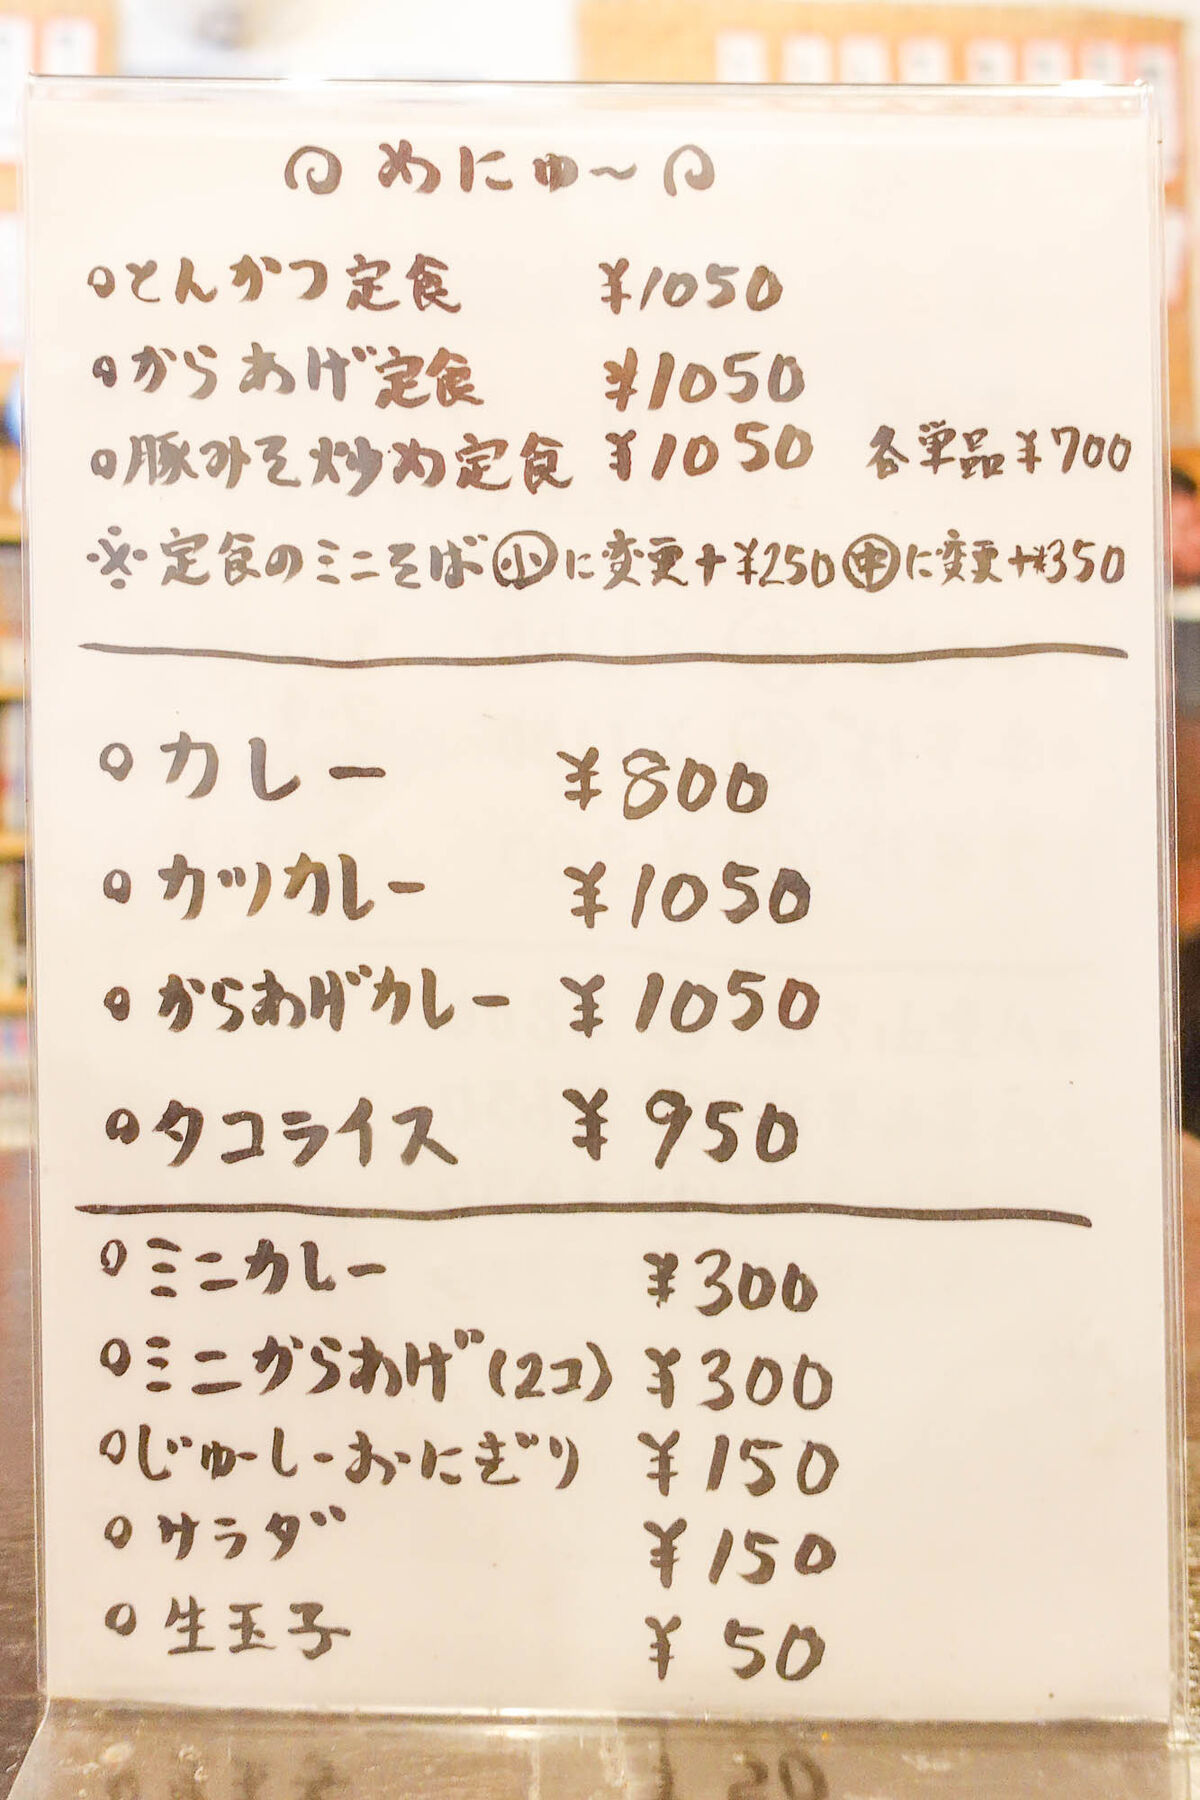 めにゅ〜
とんかつ定食 ¥1050
からあげ定食 ¥1050
豚みそ炒め定食 ¥1050 各単品¥700
※定食のミニそば㋛に変更+¥250㊥に変更+¥350
カレー ¥800
カツカレー ¥1050
からあげカレー ¥1050
タコライス ¥950
ミニカレー ¥300
ミニからあげ(2コ) ¥300
じゅーしーおにぎり ¥150
サラダ ¥150
生玉子 ¥50